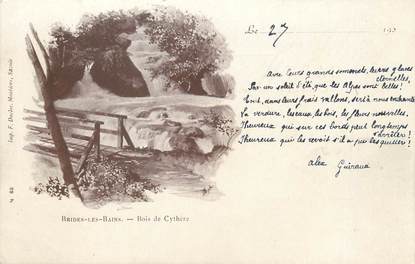 Le 27 190
Avec leurs grands sommets, leurs glaces
éternelles,
Par un soleil d'été, que les Alpes sont belles!
Tout, dans leurs frais vallons, sert à nous enchanter
La verdure, les eaux, les bois, les fleurs nouvelles.
Heureux qui sur ces bords peut longtemps
s'arrêter!
Heureux qui les revoit s'il a pu les quitter!
Alex Guiraud
Imp. F. Ducloz, Moutiers, Savoie
BRIDES-LES-BAINS. — Bois de Cythère